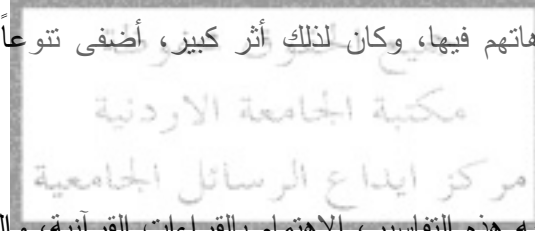 هاتهم فيها، وكان لذلك أثر كبير، أضفى تنوعاً
جميع الحقوق محفوظة
مكتبة الجامعة الاردنية
مركز ايداع الرسائل الجامعية
هذه التفاسير، الاهتمام بالقراءات القرآنية،